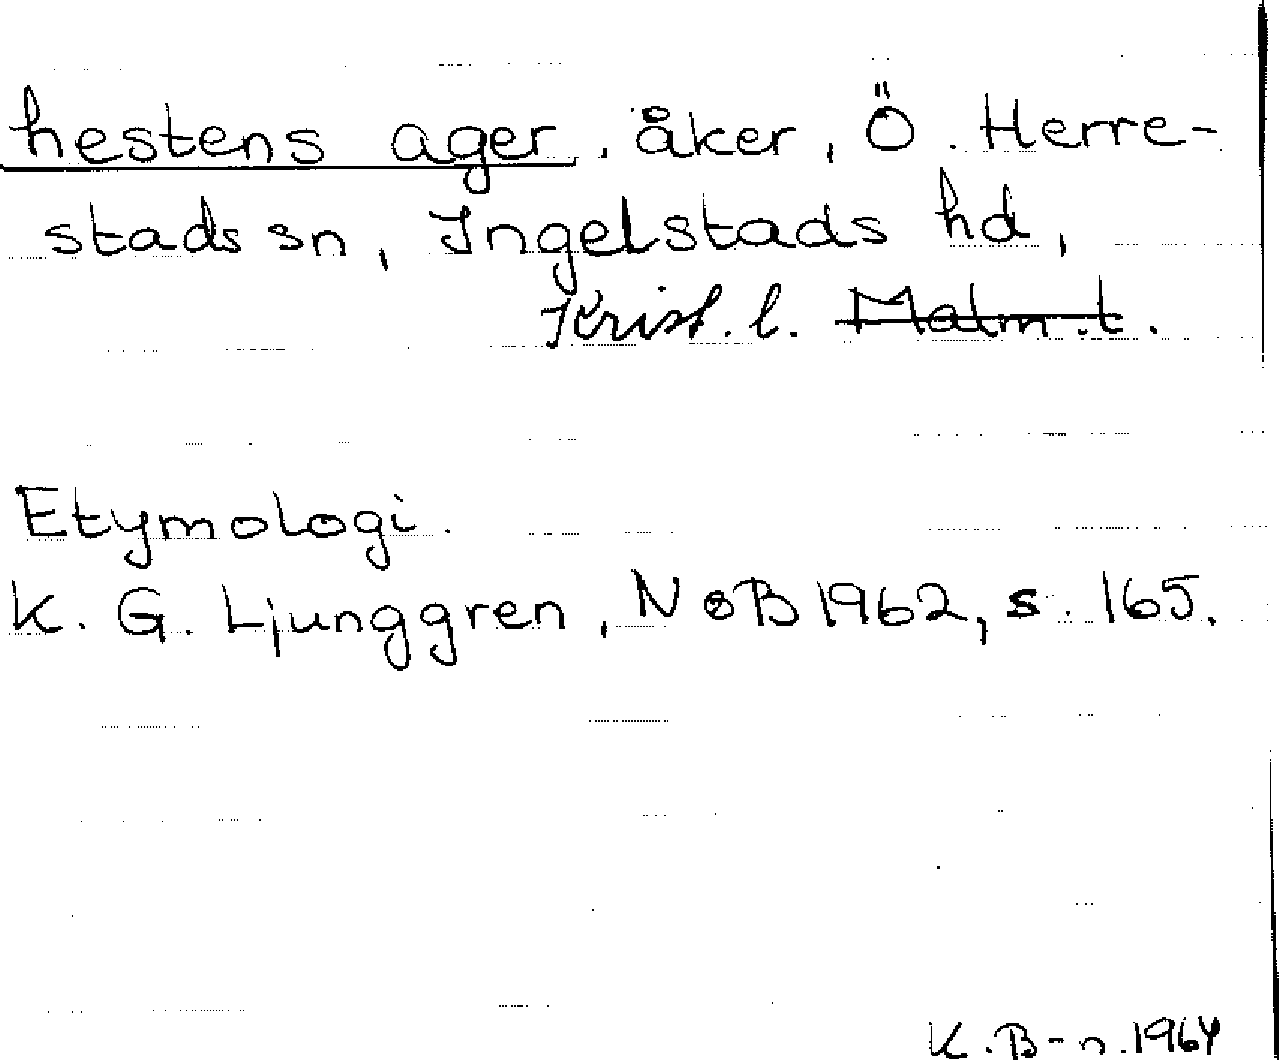 hestens ager, åker, Ö. Herre-
stads sn, Ingelstads hd,
Krist. l. Malm. l.
Etymologi.
K. G. Ljunggren, NoB 1962, s. 165.
K. B-n. 1964